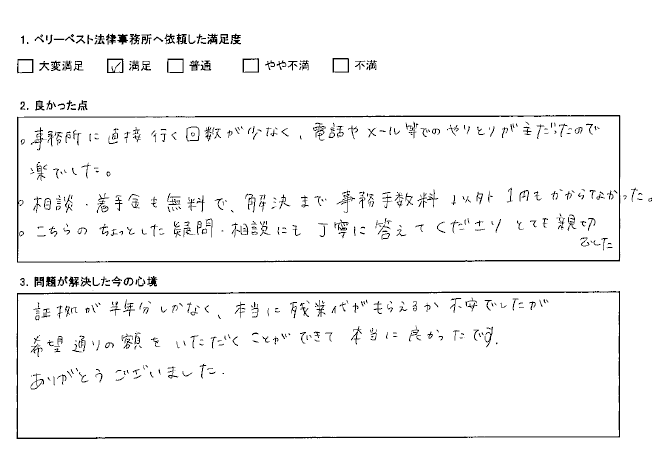 1. ベリーベスト法律事務所へ依頼した満足度
□ 大変満足 ☑ 満足 □ 普通 □ やや不満 □ 不満
2. 良かった点
。事務所に直接行く回数が少なく、電話やメール等でのやりとりが主だったので
楽でした。
。相談・着手金も無料で、解決まで事務手数料以外1円もかからなかった。
。こちらのちょっとした疑問・相談にも丁寧に答えてくださりとても親切
でした
3. 問題が解決した今の心境
証拠が半年分しかなく、本当に残業代がもらえるか不安でしたが
希望通りの額をいただくことができて本当に良かったです.
ありがとうございました.